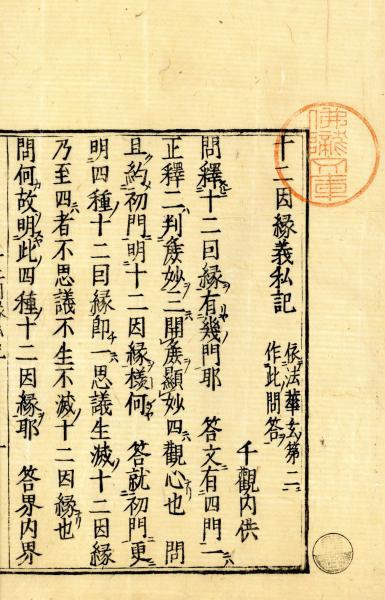 十二因縁義私記
依法華玄第二
作此問答
千觀内供
問釋十二因縁有幾門耶　答文有四門一
正釋二判麁妙三開麁顯妙四觀心也　問
且約初門明十二因縁樣何　答就初門更
明四種十二因縁即一思議生滅十二因縁
乃至四者不思議不生不滅十二因縁也
問何故明此四種十二因縁耶　答界内界